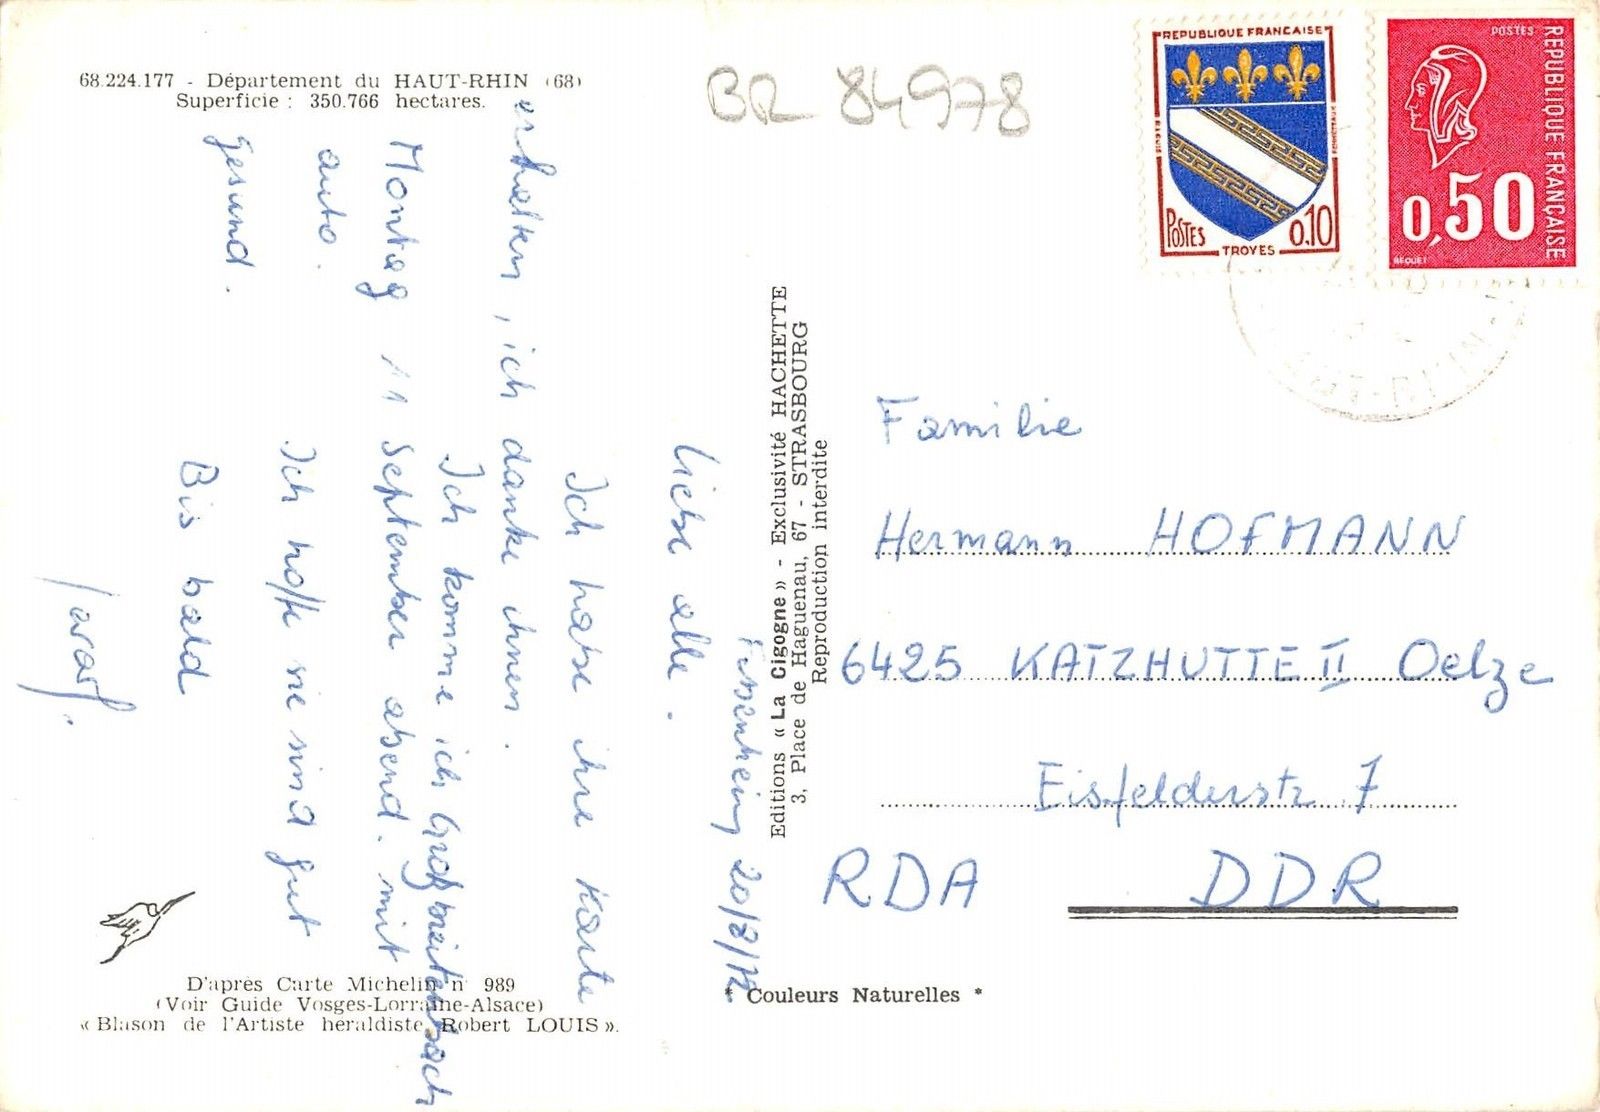 68.224.177 - Département du HAUT-RHIN (68)
Superficie : 350.766 hectares.
BR 84978
REPUBLIQUE FRANCAISE
POSTES
0.10
TROYES
POSTES
REPUBLIQUE FRANÇAISE
0,50
BEQUET
Fessenheim 20/8/72
Liebe alle.
Ich habe ihre Karte
erhalten, ich danke ihnen.
Ich komme ich Großbreitenbach
Montag 11 September abend. mit
auto.
Ich hoffe sie sind gut
gesund.
Bis bald
Editions « La Cigogne » - Exclusivité HACHETTE
3, Place de Haguenau, 67 - STRASBOURG
Reproduction interdite
Familie
Hermann HOFMANN
6425 KATZHUTTE II Oelze
Eisfelderstr 7
RDA DDR
D'après Carte Michelin n° 989
(Voir Guide Vosges-Lorraine-Alsace)
« Blason de l'Artiste héraldiste Robert LOUIS ».
* Couleurs Naturelles *